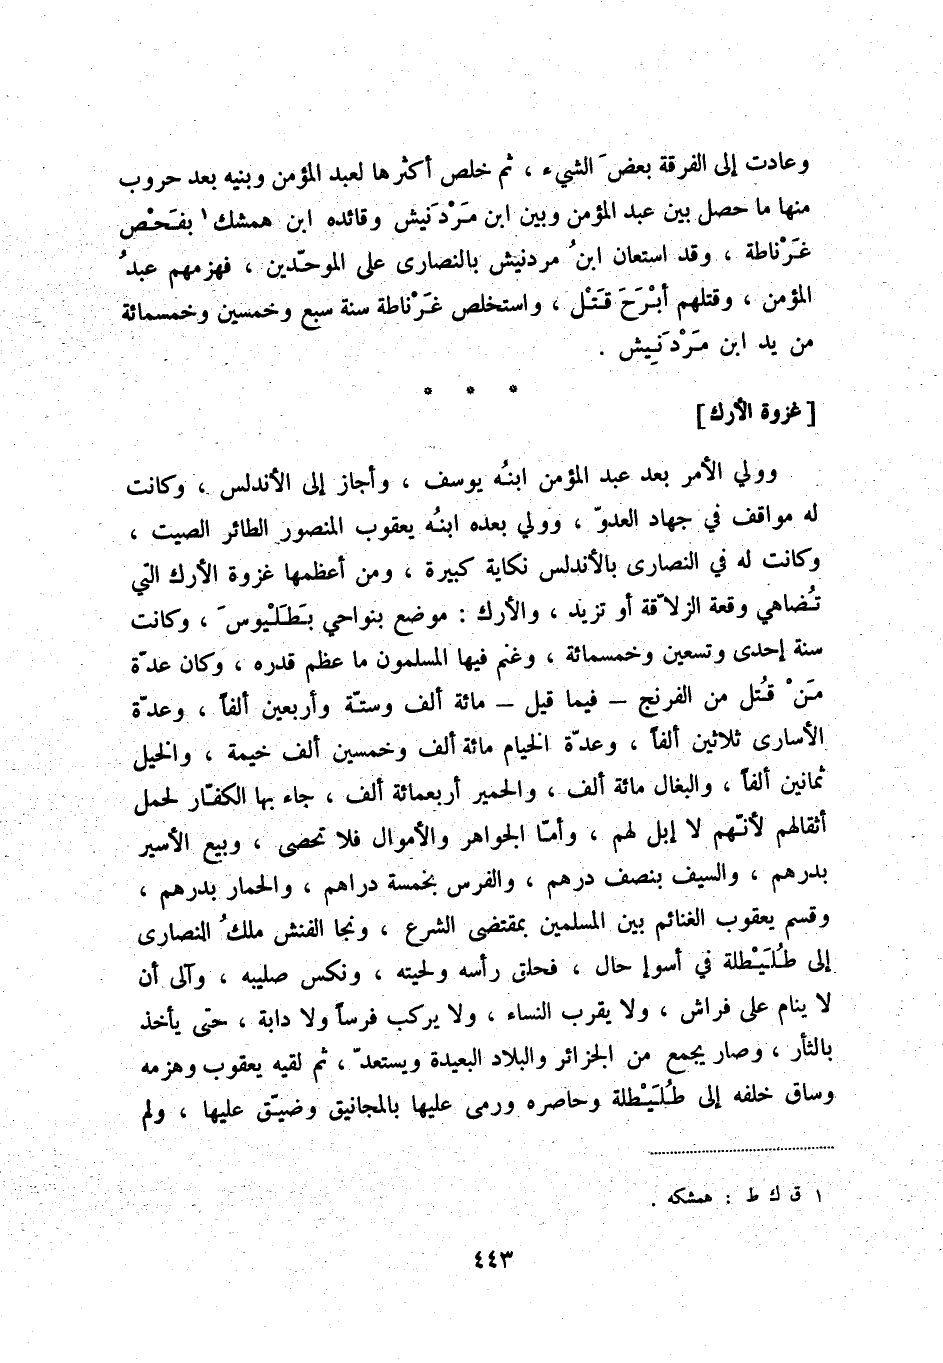 وعادت إلى الفرقة بعضَ الشيء ، ثم خلص أكثرها لعبد المؤمن وبنيه بعد حروب
منها ما حصل بين عبد المؤمن وبين ابن مَرْدَنيش وقائده ابن همشك ١ بفَحْص
غَرْناطة ، وقد استعان ابنُ مردنيش بالنصارى على الموحّدين ، فهزمهم عبدُ
المؤمن ، وقتلهم أبْرَحَ قَتْل ، واستخلص غَرْناطة سنة سبع وخمسين وخمسمائة
من يد ابن مَرْدَنِيش .
* * *
[ غزوة الأرك ]
وولي الأمر بعد عبد المؤمن ابنُه يوسف ، وأجاز إلى الأندلس ، وكانت
له مواقف في جهاد العدوّ ، وولي بعده ابنُه يعقوب المنصور الطائر الصيت ،
وكانت له في النصارى بالأندلس نكاية كبيرة ، ومن أعظمها غزوة الأرك التي
تُضاهي وقعة الزلاّقة أو تزيد ، والأرك : موضع بنواحي بَطَلْيوسَ ، وكانت
سنة إحدى وتسعين وخمسمائة ، وغنم فيها المسلمون ما عظم قدره ، وكان عدّة
مَنْ قُتل من الفرنج – فيما قيل – مائة ألف وستّة وأربعين ألفاً ، وعدّة
الأسارى ثلاثين ألفاً ، وعدّة الخيام مائة ألف وخمسين ألف خيمة ، والخيل
ثمانين ألفاً ، والبغال مائة ألف ، والحمير أربعمائة ألف ، جاء بها الكفّار لحمل
أثقالهم لأنّهم لا إبل لهم ، وأمّا الجواهر والأموال فلا تحصى ، وبيع الأسير
بدرهم ، والسيف بنصف درهم ، والفرس بخمسة دراهم ، والحمار بدرهم ،
وقسم يعقوب الغنائم بين المسلمين بمقتضى الشرع ، ونجا الفنش ملكُ النصارى
إلى طُلَيْطلة في أسوإ حال ، فحلق رأسه ولحيته ، ونكس صليبه ، وآلى أن
لا ينام على فراش ، ولا يقرب النساء ، ولا يركب فرساً ولا دابة ، حتى يأخذ
بالثأر ، وصار يجمع من الجزائر والبلاد البعيدة ويستعدّ ، ثم لقيه يعقوب وهزمه
وساق خلفه إلى طُلَيْطلة وحاصره ورمى عليها بالمجانيق وضيّق عليها ، ولم
١ ق ك ط : همشكه .
٤٤٣